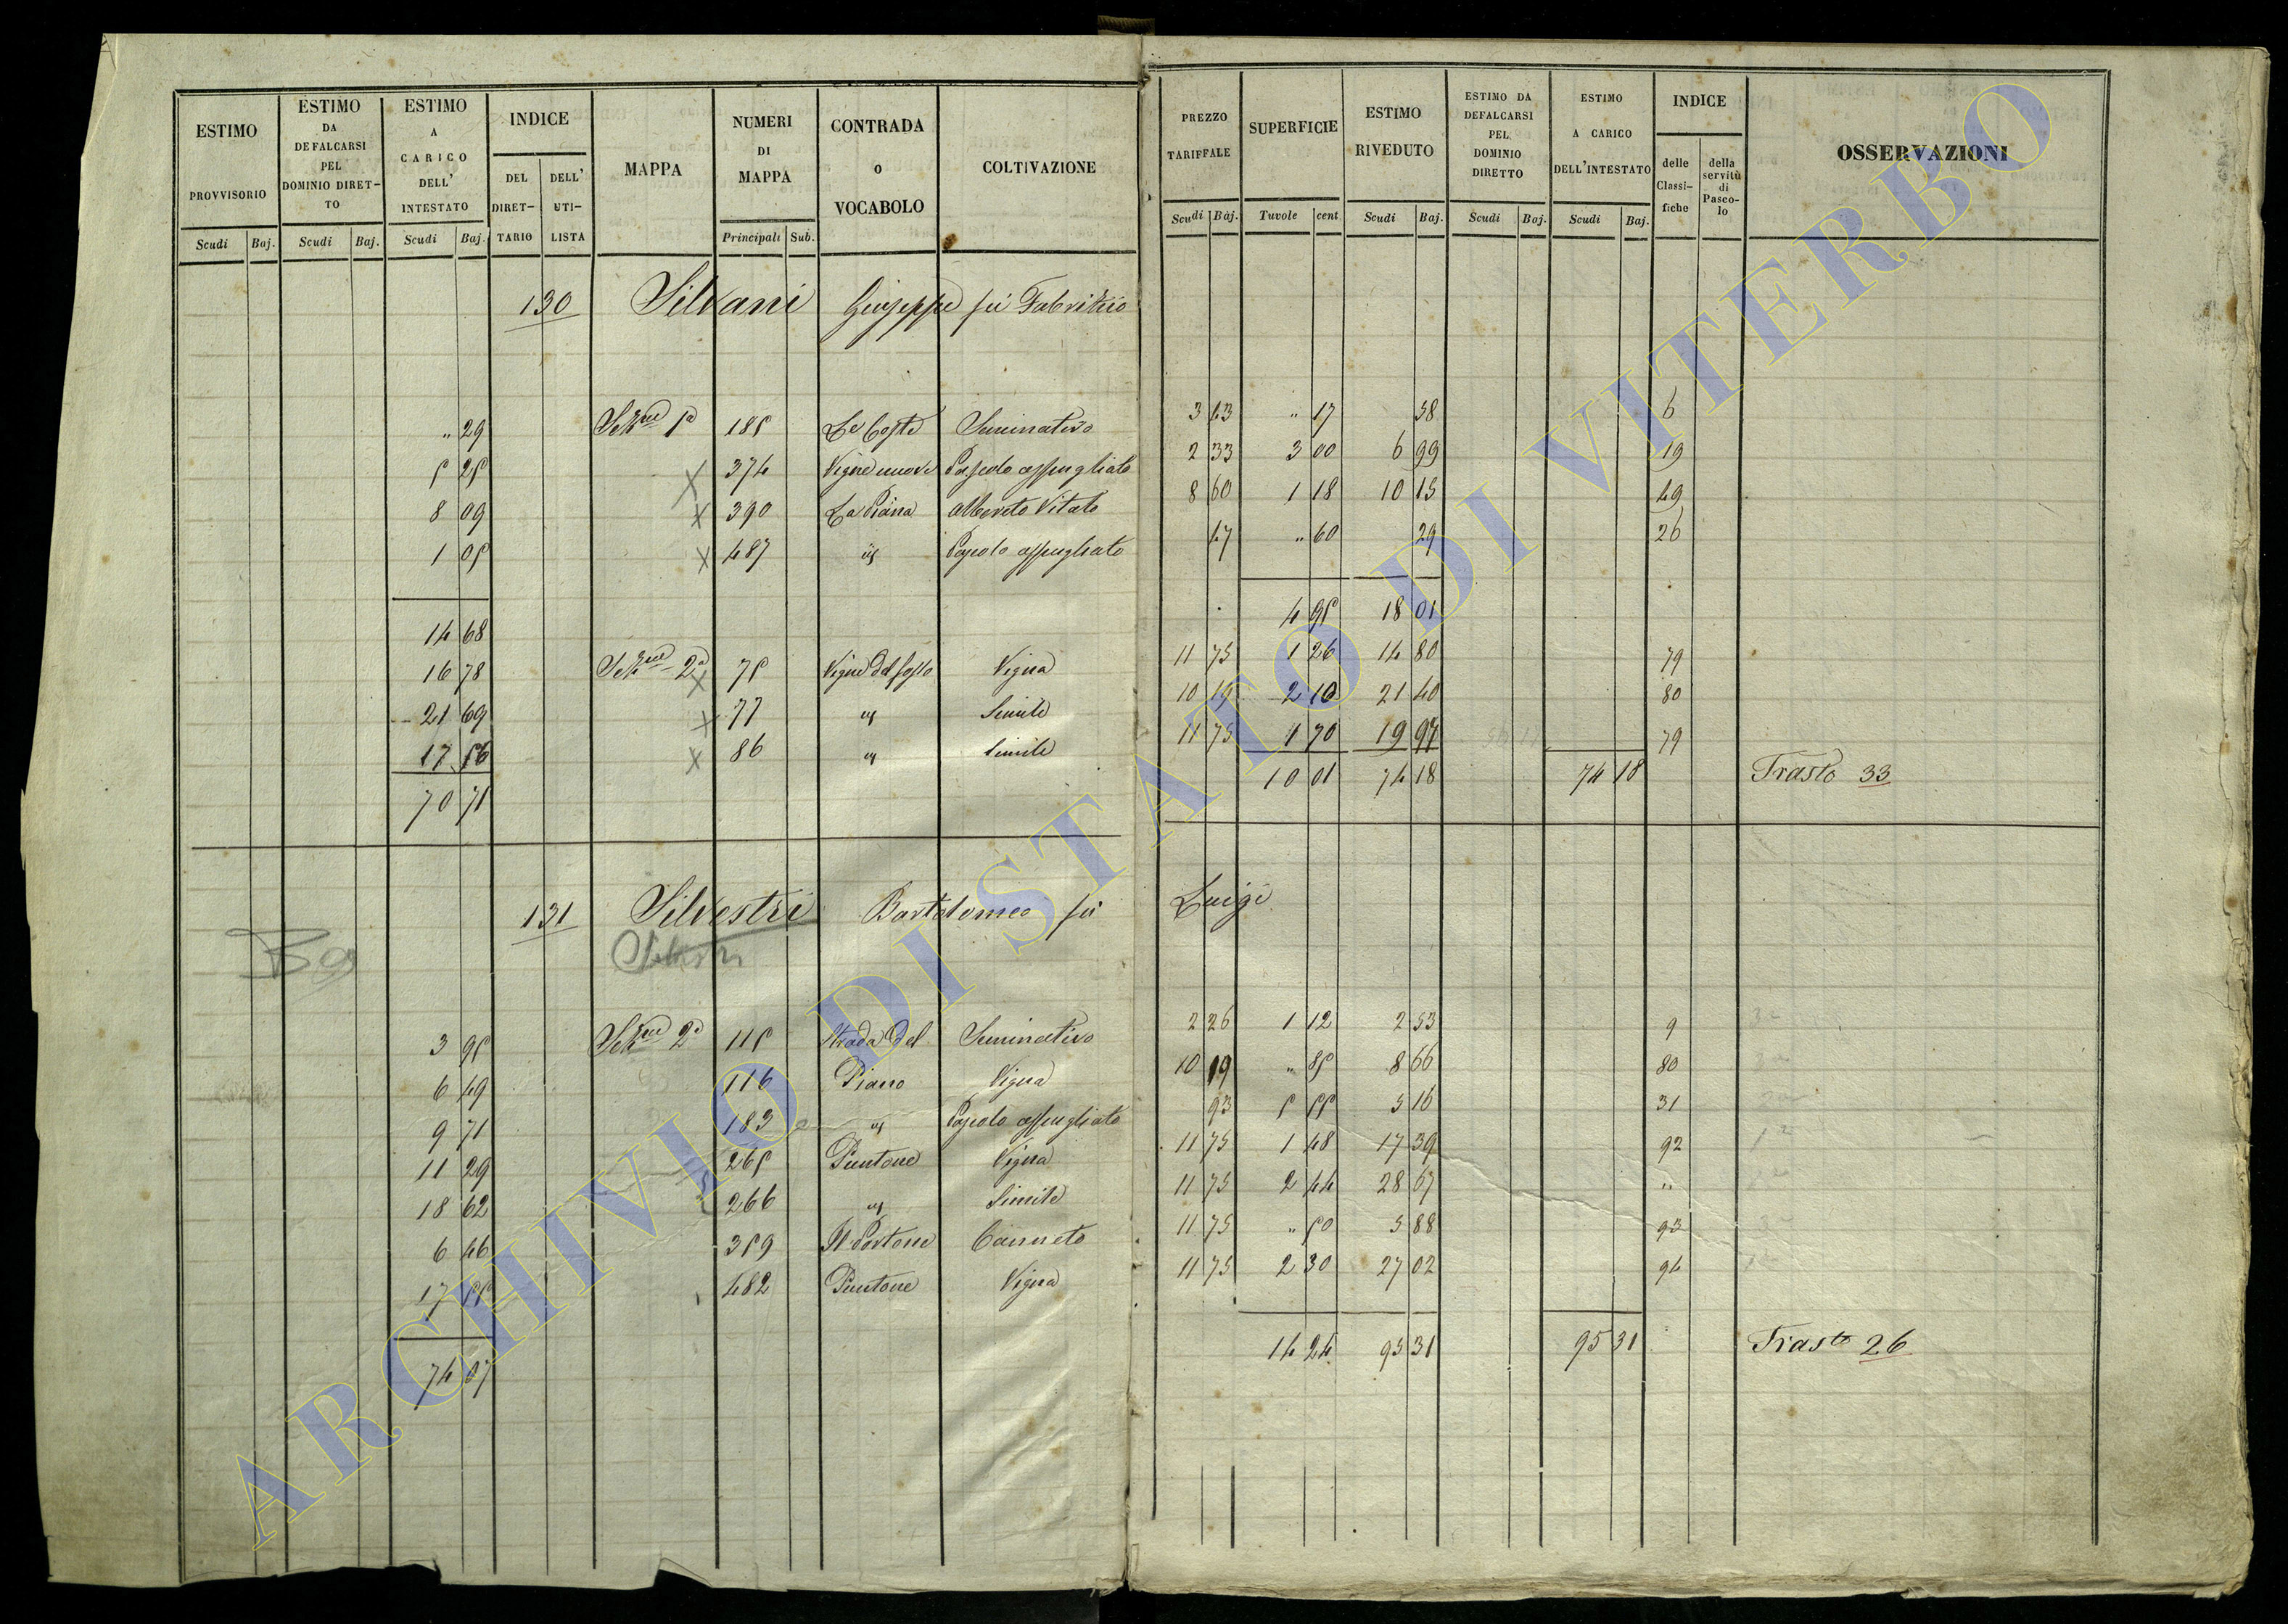 ESTIMO PROVVISORIO Scudi Baj.
ESTIMO DA DEFALCARSI PEL DOMINIO DIRET-TO Scudi Baj.
ESTIMO A CARICO DELL' INTESTATO Scudi Baj.
INDICE DEL DIRET-TARIO DELL' UTI-LISTA
MAPPA
NUMERI DI MAPPA Principali Sub.
CONTRADA o VOCABOLO
COLTIVAZIONE
PREZZO TARIFFALE Scudi Baj.
SUPERFICIE Tavole cent
ESTIMO RIVEDUTO Scudi Baj.
ESTIMO DA DEFALCARSI PEL DOMINIO DIRETTO Scudi Baj.
ESTIMO A CARICO DELL'INTESTATO Scudi Baj.
INDICE delle Classi-fiche della servitù di Pasco-lo
OSSERVAZIONI
130 Silvani Giuseppe fu Fabrizio
" 29 Sezne 1a 185 Le Coste Seminativo 3 43 " 17 58 6
5 25 374 Vigne nuove Pascolo cespugliato 2 33 3 00 6 99 19
8 09 390 La Piana Alberato Vitato 8 60 1 18 10 15 49
1 05 487 id Pascolo cespugliato 47 " 60 29 26
14 68 4 95 18 01
16 78 Sezne 2a 75 Vigne del fosso Vigna 11 75 1 26 14 80 79
21 69 77 id Simile 10 19 2 10 21 40 80
17 56 86 id Simile 11 75 1 70 19 97 79
70 71 10 01 74 18 74 18 Trasto 33
131 Silvestri Bartolomeo fu Luigi
3 95 Sezne 2a 115 Strada del Seminativo 2 26 1 12 2 53 9
6 49 116 Piano Vigna 10 19 " 85 8 66 80
9 71 183 id Pascolo cespugliato 93 5 55 5 16 31
11 29 265 Puntone Vigna 11 75 1 48 17 39 92
18 62 266 id Simile 11 75 2 44 28 67 "
6 46 359 Il Portone Canneto 11 75 " 50 5 88 93
17 55 482 Puntone Vigna 11 75 2 30 27 02 94
74 07 14 24 95 31 95 31 Trasto 26
ARCHIVIO DI STATO DI VITERBO